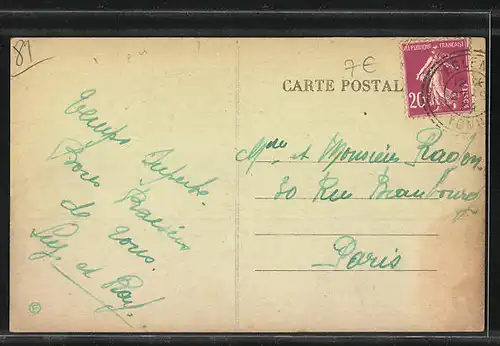 89
7€
CARTE POSTALE
REPUBLIQUE FRANÇAISE
20
POSTES
YONNE
Temps superbe.
Bons Baisers
de tous.
et
Mme et Monsieur Radon
30 Rue Beaubourg
Paris